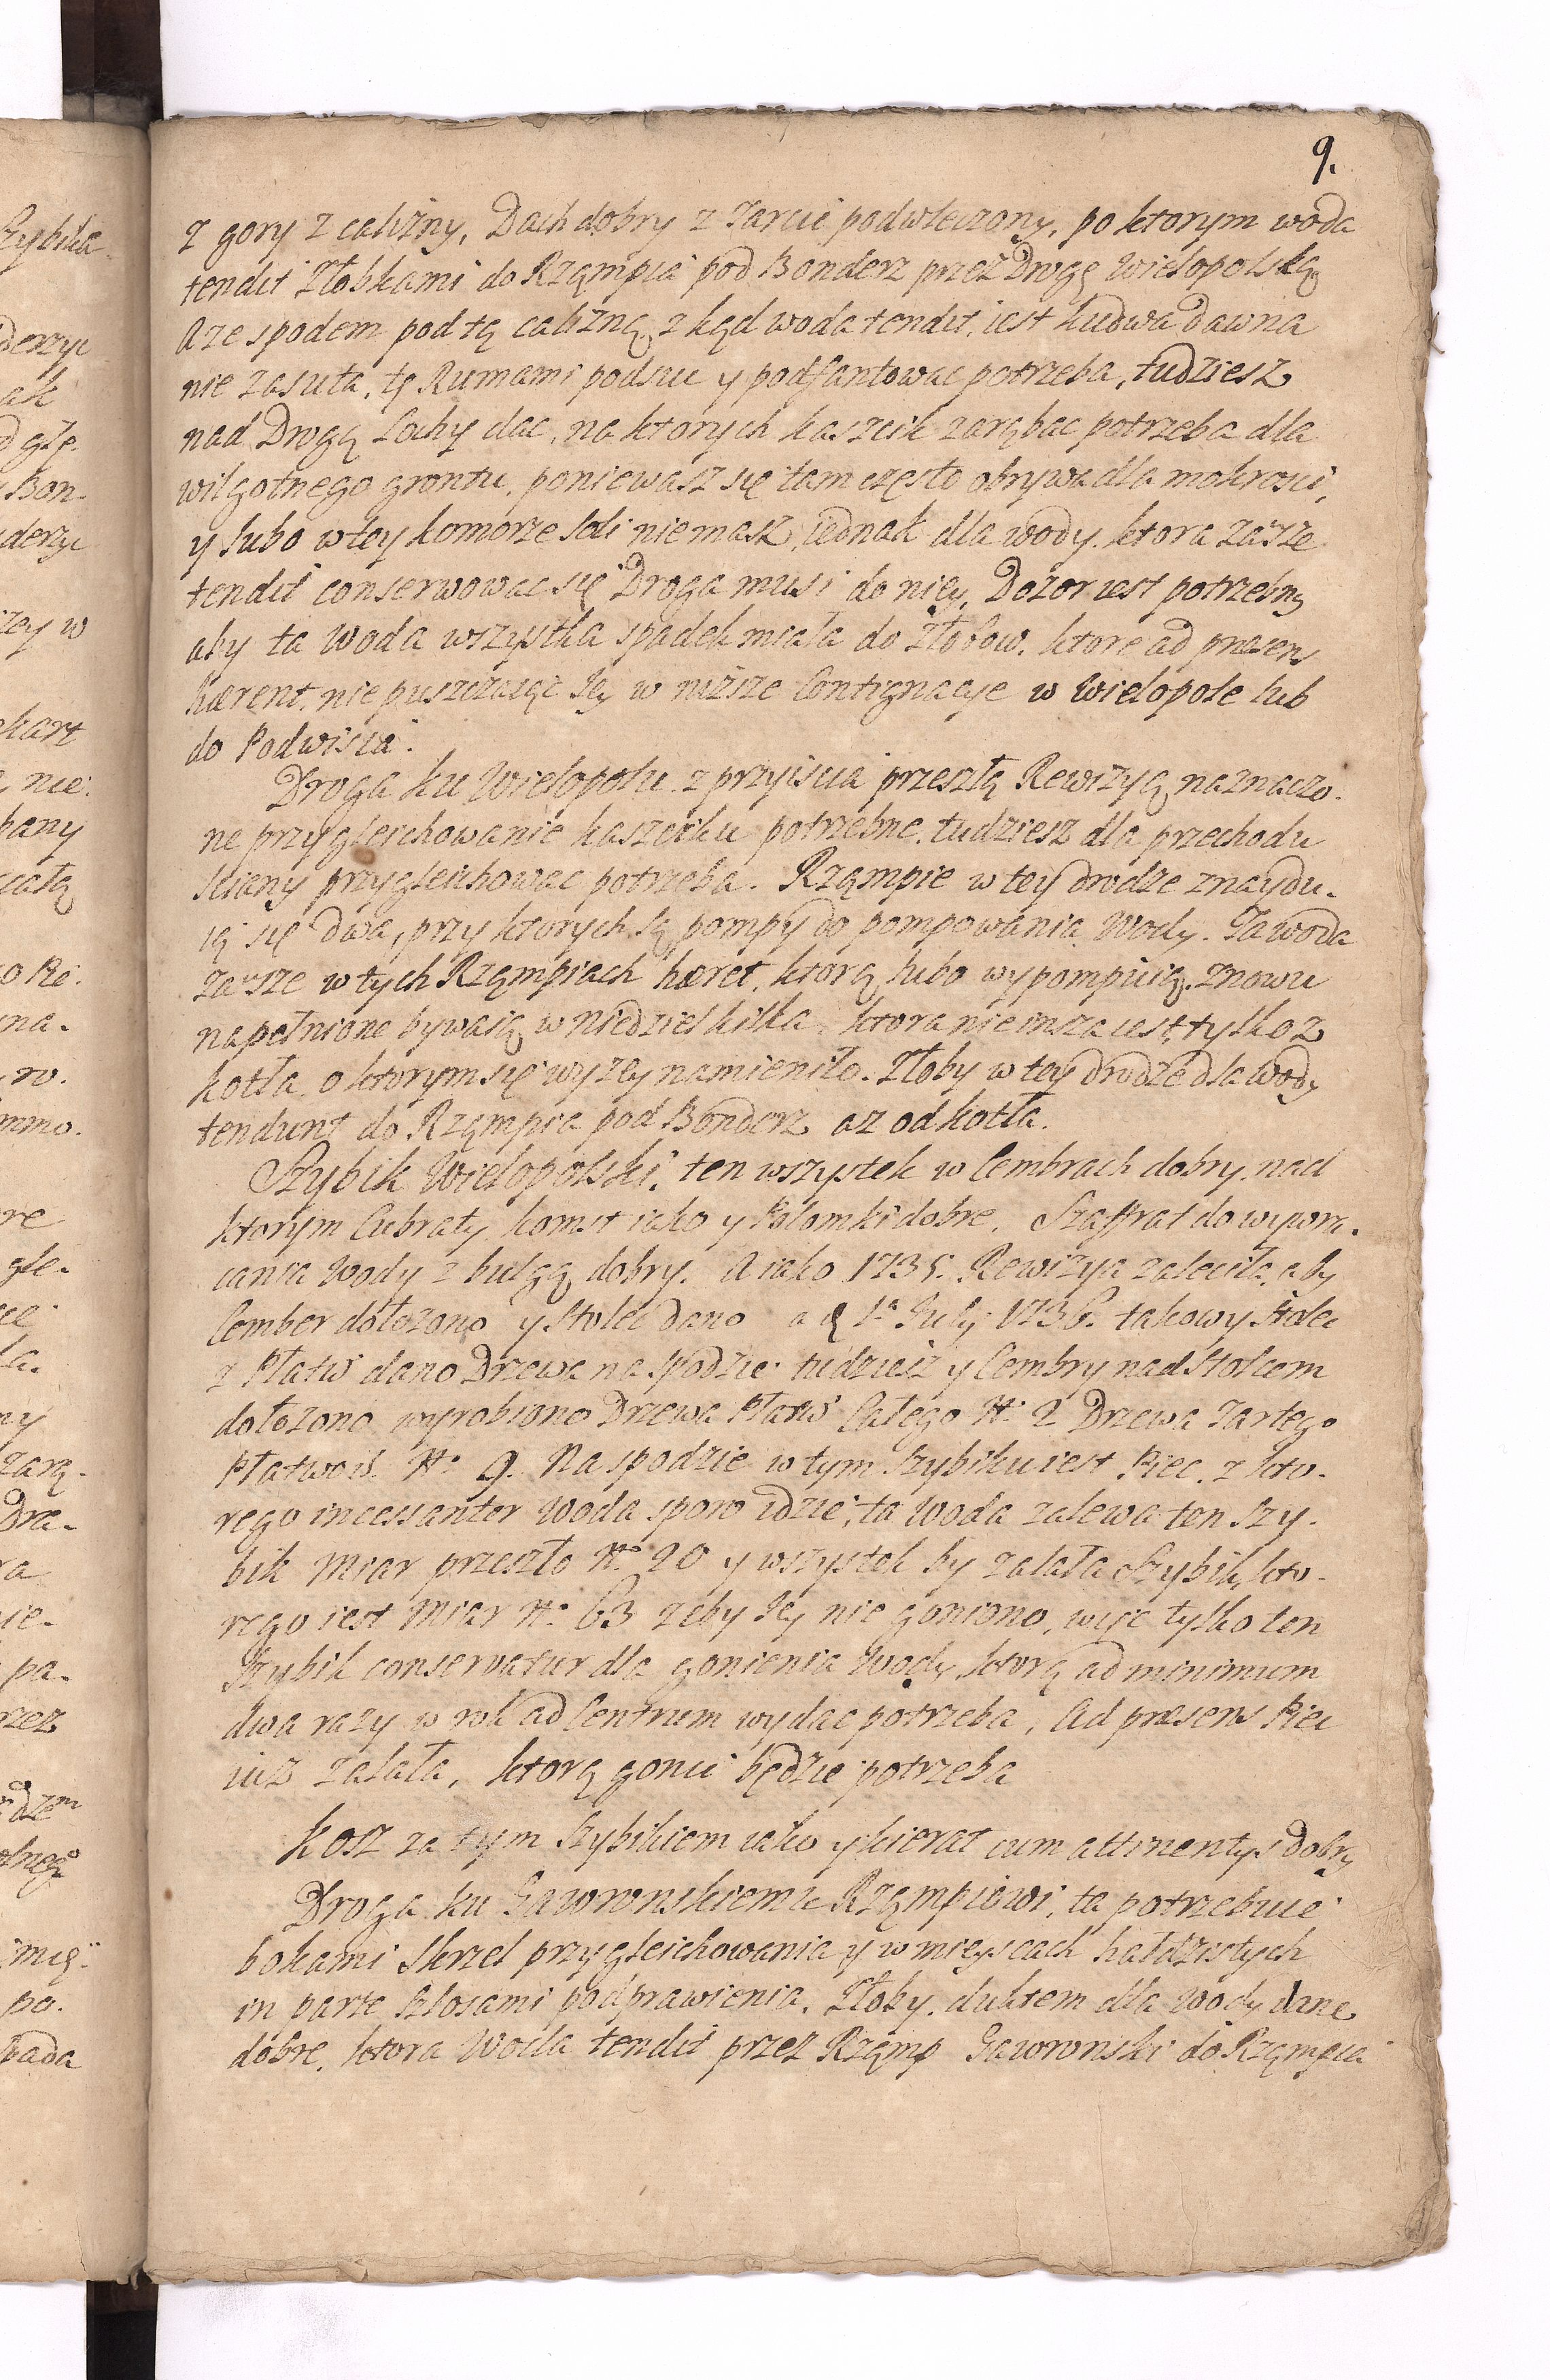 9.
z gory z calizny, Dach dobry z Tarcic podwleczony, po ktorym woda
tendit Złobkami do Rząmpia pod Bonderz przez Drogę Wielopolską
A ze spodem pod tą calizną, z kąd woda tendit, iest kudwa dawna
nie zasuta, tę Rumami podsuć y podfantować potrzeba, tudziesz
nad Drogą Sochy dac, na ktorych kaszcik zarąbac potrzeba dla
wilgotnego grontu, poniewasz się tam często obrywa dla mokrosci,
y lubo w tey komorze soli niemasz, iednak dla wody, ktora zawsze
tendit conserwowac się Droga musi do niey, Dozor iest potrzebny
aby ta woda wszystka spadek miała do Złobow, ktore ad præsens
hærent, nie puszczaiąc Jey w nizsze Contignacye w Wielopole lub
do Podwiscia.
Droga ku Wielopolu z przyiscia przeszłą Rewizyą naznaczo-
ne przygleichowanie kaszciku potrzebne, tudziesz dla przechodu
sciany przygleichowac potrzeba. Rząmpie w tey drodze znaydu-
ią się dwa, przy ktorych są pompy do pompowania Wody. Ta woda
zawsze w tych Rząmpiach hæret, ktorą lubo wypompuią, znowu
napełnione bywaią w niedziel kilka, ktora nie insza iest, tylko z
kotła, o ktorym się wyzey namieniło. Złoby w tey drodze dla Wody
tendunt do Rząmpia pod Bonderz az od kotła.
Szybik Wielopolski, ten wszystek w Cembrach dobry, nad
ktorym Cubraty, komst iako y Polomki dobre. Szaffrat do wywra-
cania Wody z bulgą dobry. A iako 1735. Rewizya zaleciła, aby
Cember dołozono y Stolec dano a d 1ª July 1736. takowy Stolec
z Płatw dano Drzewa na spodzie tudziesz y Cembry nad Stolcem
dołozono wyrobiono Drzewa Płatw Całego Nº 2 Drzewa Tartego
Płatwois. Nº 9. Na spodzie w tym Szybiku iest Piec, z kto-
rego incessanter Woda sporo idzie, ta Woda zalewa ten Szy-
bik Miar przeszło Nº 20 y wszystek by zalała Szybik, kto-
rego iest Miar Nº 63 zeby Jey nie goniono, więc tylko ten
Szybik conservatur dla gonienia Wody, ktorą ad minimum
dwa razy w rok ad Centrum wydac potrzeba, Ad præsens Piec
iuz zalała, ktorą gonic będzie potrzeba
Kosz za tym Szybikiem iako y kierat cum attinentys dobry
Droga ku Gawronskiemu Rząmpiowi, ta potrzebuie
bokami Skrzel przygleichowania y w mieyscach hałdzistych
in parte Szlosami podprawienia. Złoby duktem dla Wody dane
dobre, ktora Woda tendit przez Rząmp Gawronski do Rząmpia